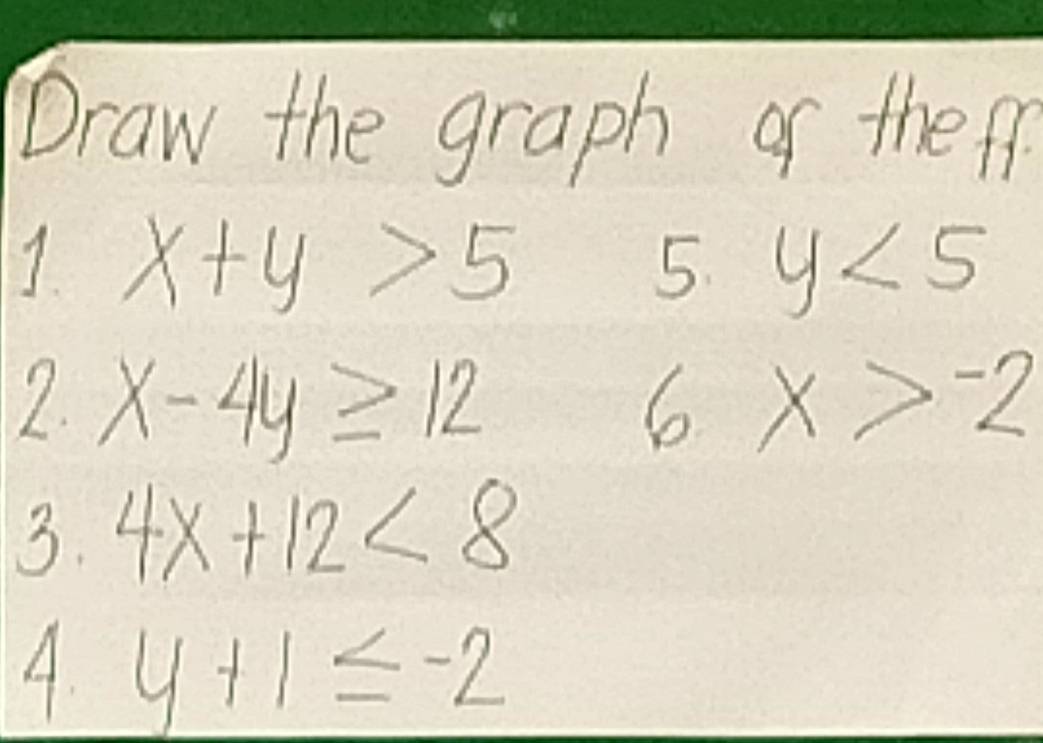 Draw the graph of the ff.
1. x+y >5 5. y<5
2. x-4y ≥ 12 6. x > -2
3. 4x+12 < 8
4. y+1 ≤ -2